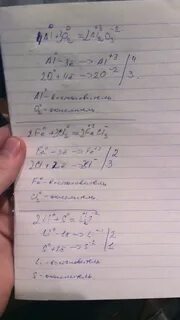 4Al⁰+3O₂⁰=2Al₂⁺³O₃⁻²
Al⁰-3e→Al⁺³ /4
2O⁰+4e→2O⁻² /3
Al⁰-восстановитель
O₂⁰-окислитель
2Fe⁰+3Cl₂⁰=2Fe⁺³Cl₃⁻
Fe⁰-3e→Fe⁺³ /2
/3
Fe⁰-восстановитель
Cl₂⁰-окислитель
/2
S⁰+2e→S⁻² /1
восстановитель
S-окислитель